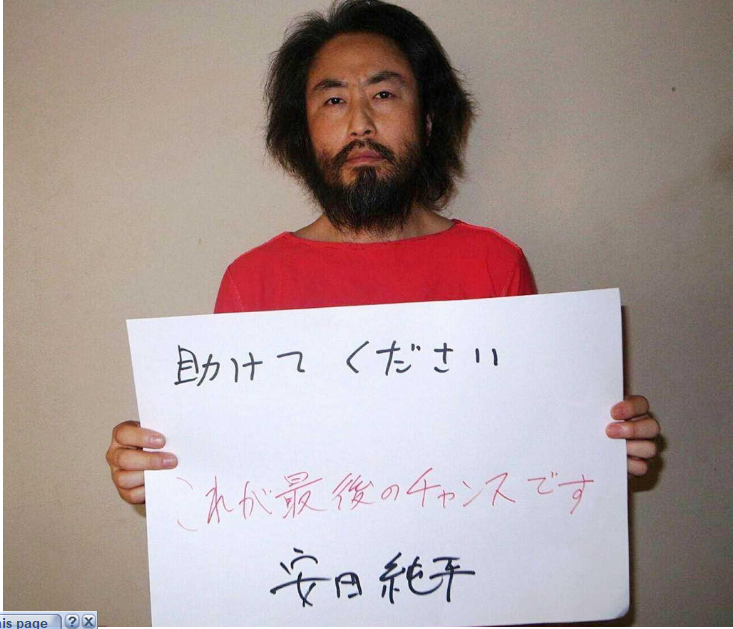 助けてください
これが最後のチャンスです
安田純平
his page